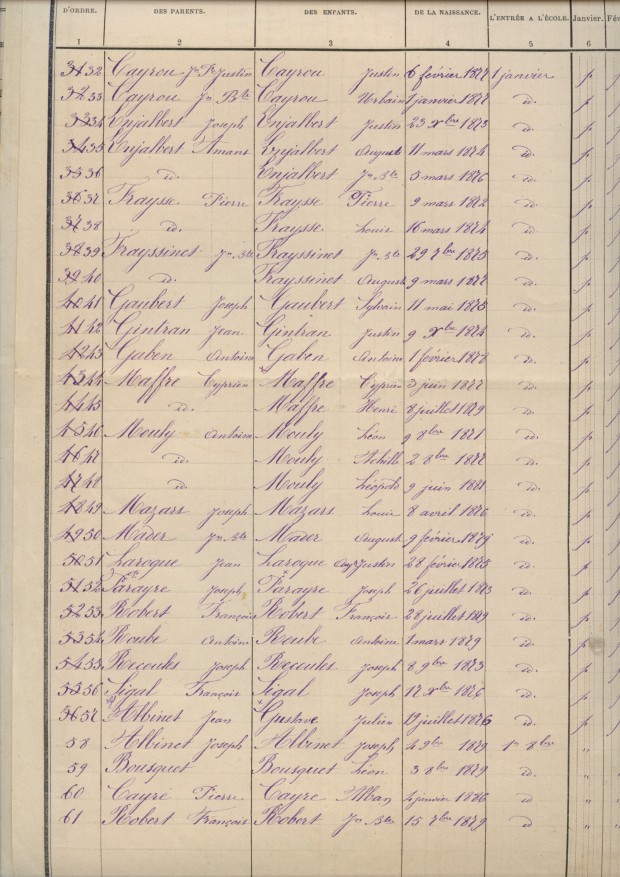 D'ORDRE. DES PARENTS. DES ENFANTS. DE LA NAISSANCE. L'ENTRÉE A L'ÉCOLE. Janvier. Fév
1 2 3 4 5 6
31 32 Cayrou Jn Pre Justin Cayrou Justin 6 février 1877 1 janvier p
32 33 Cayrou Jn Bte Cayrou Urbain janvier 1877 id. p
33 34 Enjalbert Joseph Enjalbert Justin 23 Xbre 1873 id. p
34 35 Enjalbert Amans Enjalbert August 11 mars 1874 id. p
35 36 id. Enjalbert Jn Bte 3 mars 1876 id. p
36 37 Fraysse Pierre Fraysse Pierre 9 mars 1872 id. p
37 38 id. Fraysse Louis 16 mars 1874 id. p
38 39 Frayssinet Jn Bte Frayssinet Jn Bte 29 7bre 1875 id. p
39 40 id. Frayssinet August 9 mars 1877 id. p
40 41 Gaubert Joseph Gaubert Sylvain 11 mai 1875 id. p
41 42 Gintran Jean Gintran Justin 9 Xbre 1874 id. p
42 43 Gaben Antoine Gaben Antoine 1 février 1878 id. p
43 44 Maffre Cyprien Maffre Cyprien 3 juin 1877 id. p
44 45 id. Maffre Henri 8 juillet 1879 id. p
45 46 Mouly Antoine Mouly Léon 9 8bre 1871 id. p
46 47 id. Mouly Achille 2 8bre 1877 id. p
47 48 id. Mouly Léopold 9 juin id. p
48 49 Mazars Joseph Mazars Louis 8 avril 1876 id. p
49 50 Mader Jn Bte Mader August 9 février id. p
50 51 Laroque Jean Laroque Augte Justin 28 février 1875 id. p
51 52 Parayre Joseph Parayre Joseph 26 juillet 1873 id. p
52 53 Robert François Robert François 28 juillet 1879 id. p
53 54 Roube Antoine Roube Antoine 1 mars 1879 id. p
54 55 Recoules Joseph Recoules Joseph 8 9bre 1873 id. p
55 56 Sigal François Sigal Joseph 17 Xbre 1876 id. p
56 57 Albinet Jean Gustave Julien 19 juillet 1876 id. p
58 Albinet Joseph Albinet Joseph 4 9bre 1879 1er 8bre "
59 Bousquet Bousquet Léon 3 8bre 1879 id. "
60 Cayre Pierre Cayre Alban janvier 1876 id "
61 Robert François Robert Jn Bte 15 7bre 1879 id "